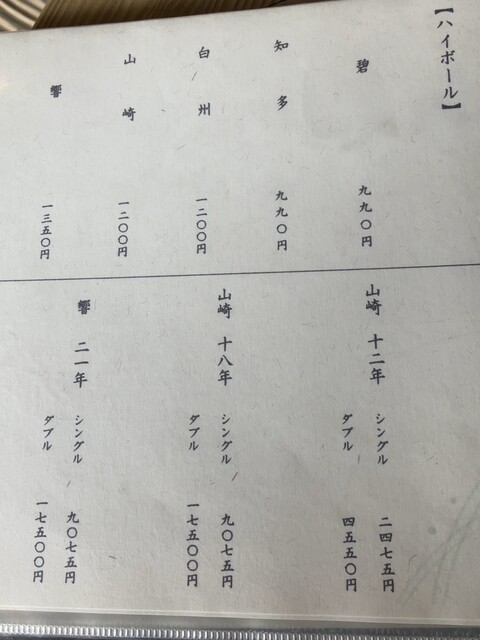 【ハイボール】
碧 九九〇円
知多 九九〇円
白州 一二〇〇円
山崎 一二〇〇円
響 一三五〇円
山崎 十二年 シングル 二四七五円
ダブル 四五五〇円
山崎 十八年 シングル 九〇七五円
ダブル 一七五〇〇円
響 二一年 シングル 九〇七五円
ダブル 一七五〇〇円